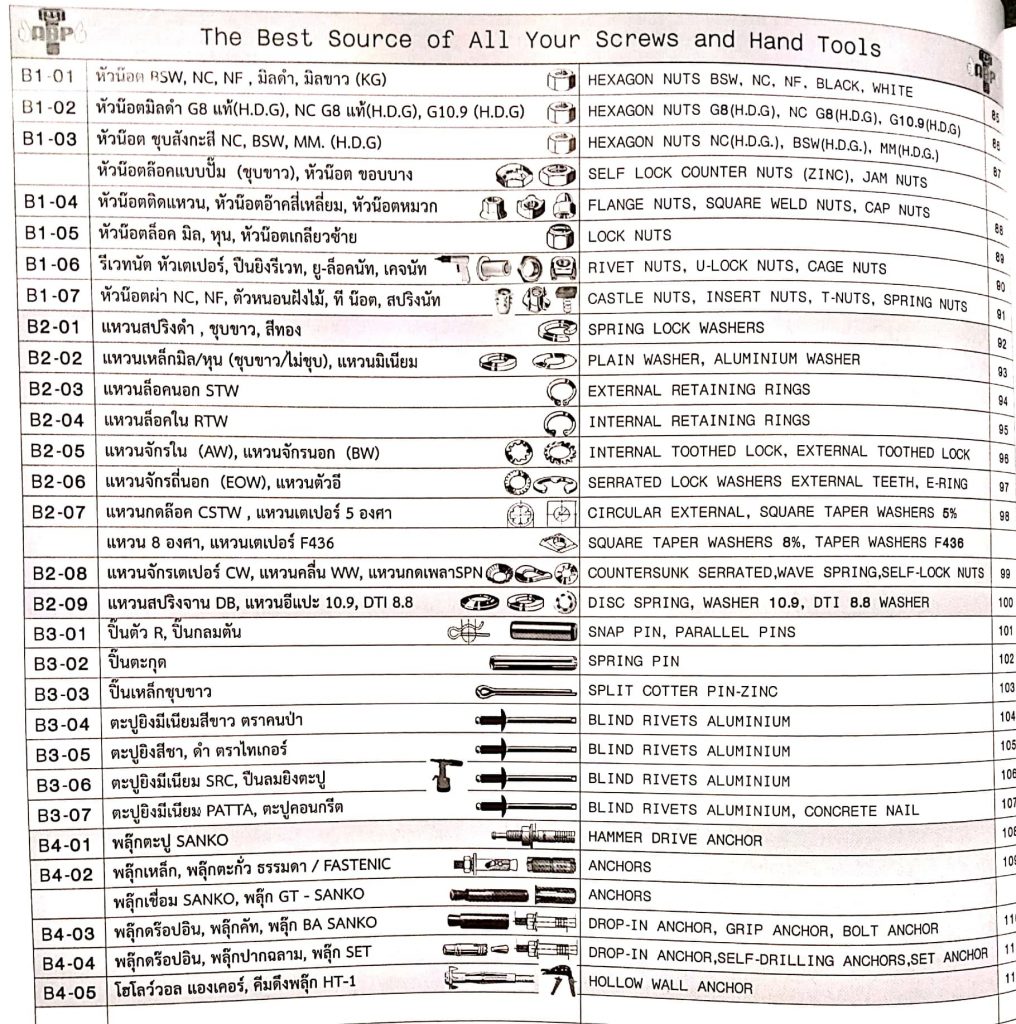 ABP
The Best Source of All Your Screws and Hand Tools
B1-01 หัวน๊อต BSW, NC, NF , มิลดำ, มิลขาว (KG) HEXAGON NUTS BSW, NC, NF, BLACK, WHITE 85
B1-02 หัวน๊อตมิลดำ G8 แท้(H.D.G), NC G8 แท้(H.D.G), G10.9 (H.D.G) HEXAGON NUTS G8(H.D.G), NC G8(H.D.G), G10.9(H.D.G) 86
B1-03 หัวน๊อต ชุบสังกะสี NC, BSW, MM. (H.D.G) HEXAGON NUTS NC(H.D.G.), BSW(H.D.G.), MM(H.D.G.) 87
หัวน๊อตล๊อคแบบปั๊ม (ชุบขาว), หัวน๊อต ขอบบาง SELF LOCK COUNTER NUTS (ZINC), JAM NUTS
B1-04 หัวน๊อตติดแหวน, หัวน๊อตอ๊าคสี่เหลี่ยม, หัวน๊อตหมวก FLANGE NUTS, SQUARE WELD NUTS, CAP NUTS 88
B1-05 หัวน๊อตล็อค มิล, หุน, หัวน๊อตเกลียวซ้าย LOCK NUTS 89
B1-06 รีเวทนัต หัวเตเปอร์, ปืนยิงรีเวท, ยู-ล็อคนัท, เคจนัท RIVET NUTS, U-LOCK NUTS, CAGE NUTS 90
B1-07 หัวน๊อตผ่า NC, NF, ตัวหนอนฝังไม้, ที น๊อต, สปริงนัท CASTLE NUTS, INSERT NUTS, T-NUTS, SPRING NUTS 91
B2-01 แหวนสปริงดำ , ชุบขาว, สีทอง SPRING LOCK WASHERS 92
B2-02 แหวนเหล็กมิล/หุน (ชุบขาว/ไม่ชุบ), แหวนมิเนียม PLAIN WASHER, ALUMINIUM WASHER 93
B2-03 แหวนล็อคนอก STW EXTERNAL RETAINING RINGS 94
B2-04 แหวนล็อคใน RTW INTERNAL RETAINING RINGS 95
B2-05 แหวนจักรใน (AW), แหวนจักรนอก (BW) INTERNAL TOOTHED LOCK, EXTERNAL TOOTHED LOCK 96
B2-06 แหวนจักรถี่นอก (EOW), แหวนตัวอี SERRATED LOCK WASHERS EXTERNAL TEETH, E-RING 97
B2-07 แหวนกดล๊อค CSTW , แหวนเตเปอร์ 5 องศา CIRCULAR EXTERNAL, SQUARE TAPER WASHERS 5% 98
แหวน 8 องศา, แหวนเตเปอร์ F436 SQUARE TAPER WASHERS 8%, TAPER WASHERS F436
B2-08 แหวนจักรเตเปอร์ CW, แหวนคลื่น WW, แหวนกดเพลาSPN COUNTERSUNK SERRATED,WAVE SPRING,SELF-LOCK NUTS 99
B2-09 แหวนสปริงจาน DB, แหวนอีแปะ 10.9, DTI 8.8 DISC SPRING, WASHER 10.9, DTI 8.8 WASHER 100
B3-01 ปิ๊นตัว R, ปิ๊นกลมตัน SNAP PIN, PARALLEL PINS 101
B3-02 ปิ๊นตะกุด SPRING PIN 102
B3-03 ปิ๊นเหล็กชุบขาว SPLIT COTTER PIN-ZINC 103
B3-04 ตะปูยิงมีเนียมสีขาว ตราคนป่า BLIND RIVETS ALUMINIUM 104
B3-05 ตะปูยิงสีชา, ดำ ตราไทเกอร์ BLIND RIVETS ALUMINIUM 105
B3-06 ตะปูยิงมีเนียม SRC, ปืนลมยิงตะปู BLIND RIVETS ALUMINIUM 106
B3-07 ตะปูยิงมีเนียม PATTA, ตะปูคอนกรีต BLIND RIVETS ALUMINIUM, CONCRETE NAIL 107
B4-01 พลุ๊กตะปู SANKO HAMMER DRIVE ANCHOR 108
B4-02 พลุ๊กเหล็ก, พลุ๊กตะกั่ว ธรรมดา / FASTENIC ANCHORS 109
พลุ๊กเชื่อม SANKO, พลุ๊ก GT - SANKO ANCHORS
B4-03 พลุ๊กดร๊อปอิน, พลุ๊กคัท, พลุ๊ก BA SANKO DROP-IN ANCHOR, GRIP ANCHOR, BOLT ANCHOR
B4-04 พลุ๊กดร๊อปอิน, พลุ๊กปากฉลาม, พลุ๊ก SET DROP-IN ANCHOR,SELF-DRILLING ANCHORS,SET ANCHOR
B4-05 โฮโลว์วอล แองเคอร์, คีมดึงพลุ๊ก HT-1 HOLLOW WALL ANCHOR